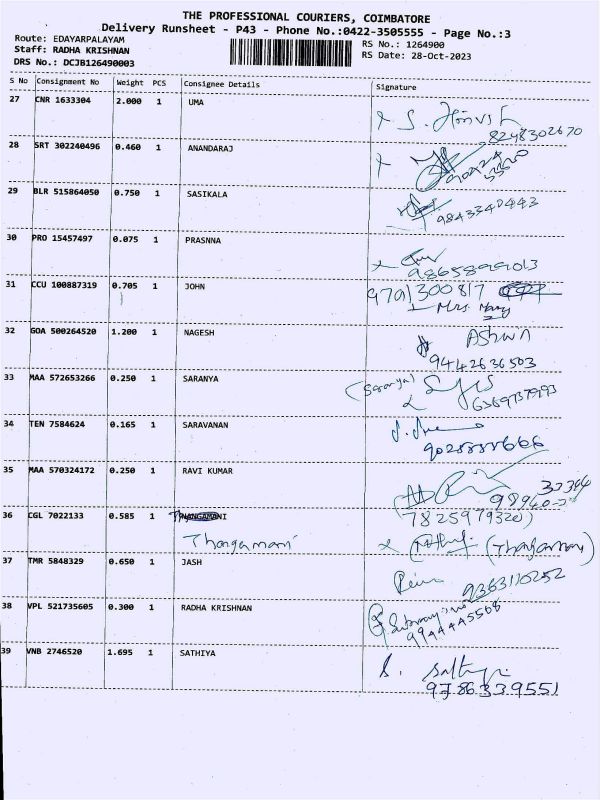 THE PROFESSIONAL COURIERS, COIMBATORE
Delivery Runsheet - P43 - Phone No.:0422-3505555 - Page No.:3
Route: EDAYARPALAYAM
RS No.: 1264900
Staff: RADHA KRISHNAN
RS Date: 28-Oct-2023
DRS No.: DCJB126490003
S No Consignment No Weight PCS Consignee Details Signature
27 CNR 1633304 2.000 1 UMA
8248302670
28 SRT 302240496 0.460 1 ANANDARAJ
29 BLR 515864050 0.750 1 SASIKALA
9843340443
30 PRO 15457497 0.075 1 PRASNNA
9865899013
31 CCU 100887319 0.705 1 JOHN
9791300817
Mrs. Mary
32 GOA 500264520 1.200 1 NAGESH
Ashwn
9442636503
33 MAA 572653266 0.250 1 SARANYA
(Saranya)
6369737993
34 TEN 7584624 0.165 1 SARAVANAN
35 MAA 570324172 0.250 1 RAVI KUMAR
36 CGL 7022133 0.585 1
7825979320)
Thangamani
(Thangamani)
37 TMR 5848329 0.650 1 JASH
9363110252
38 VPL 521735605 0.300 1 RADHA KRISHNAN
9944445568
39 VNB 2746520 1.695 1 SATHIYA
S. Sathiya
9786339551